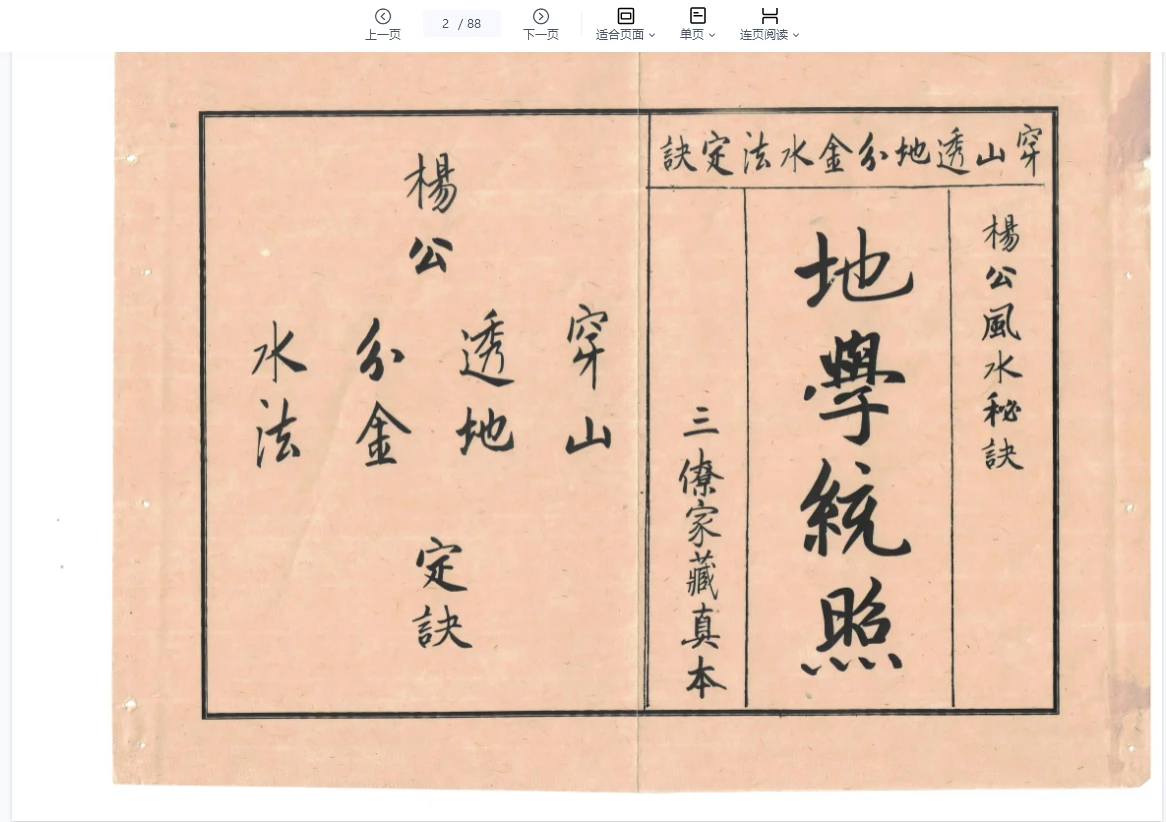 上一页
2 / 88
下一页
适合页面
单页
连页阅读
穿山透地分金水法定訣
楊公風水秘訣
地學統照
三僚家藏真本
楊公
穿山
透地
分金
水法
定訣